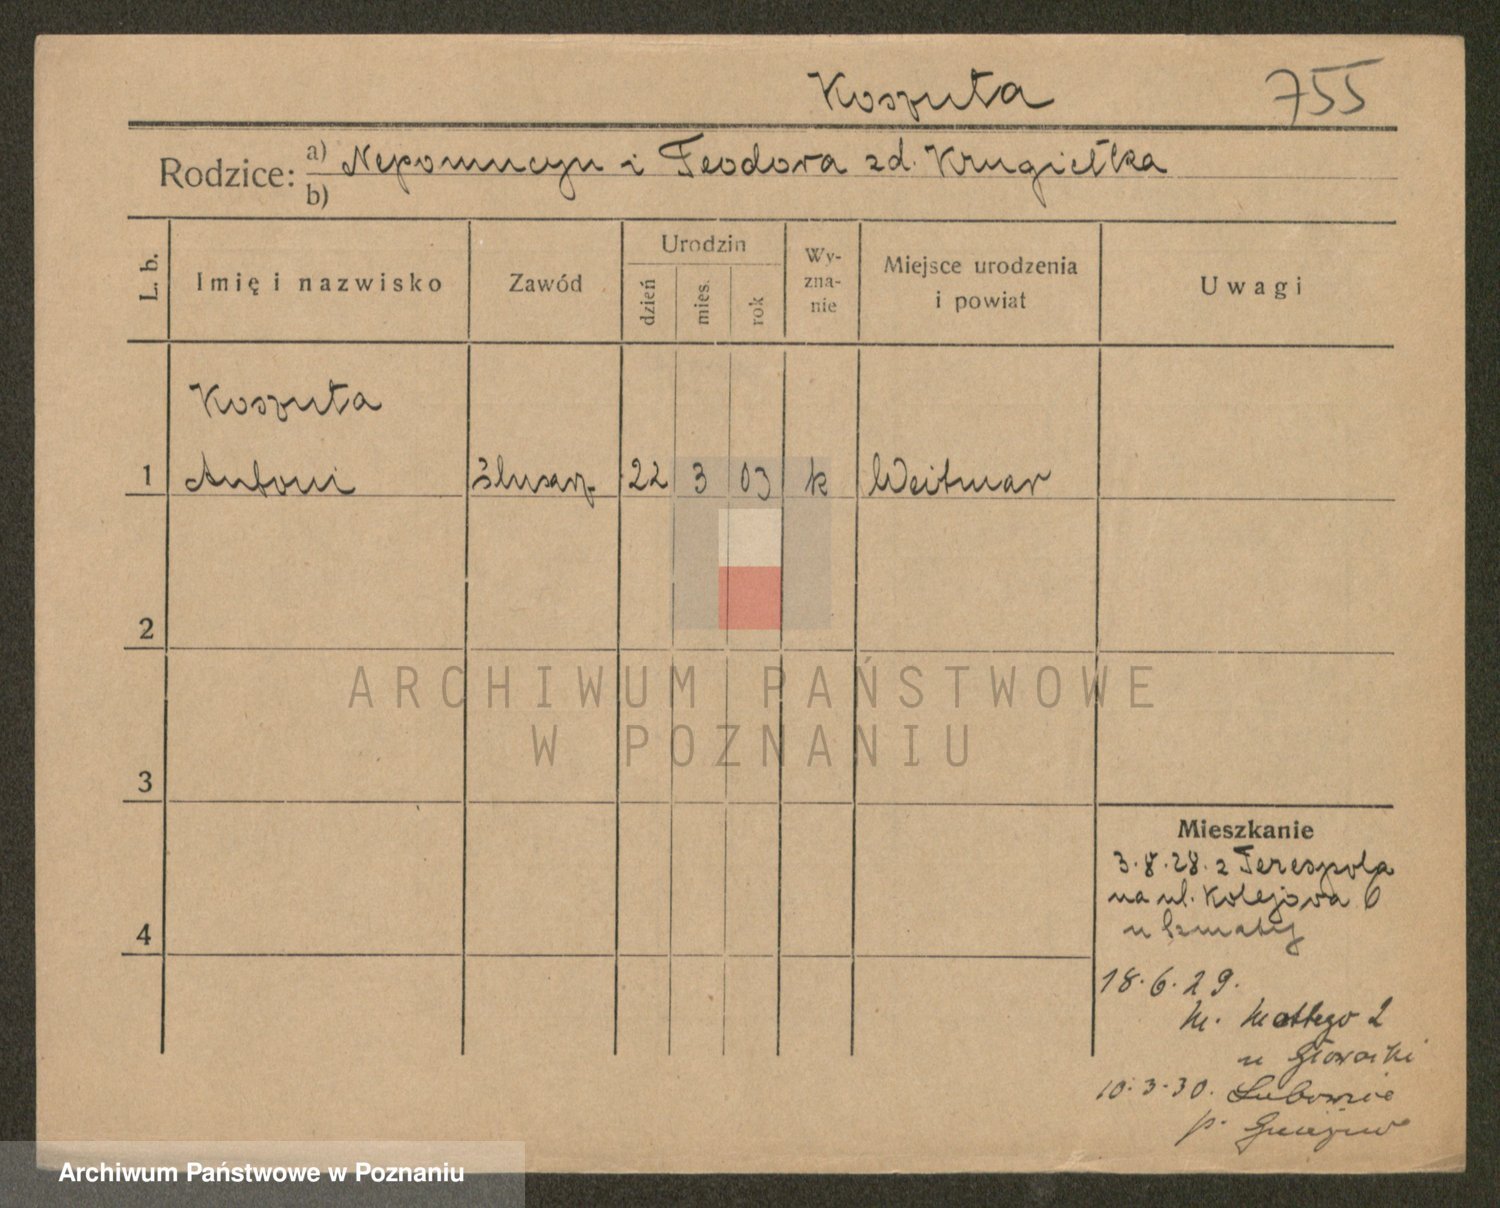 Koszuta 755
Rodzice: a) Nepomucyn i Teodora zd. Krugiełka
b)
L. b. Imię i nazwisko Zawód Urodzin dzień mies. rok Wy-zna-nie Miejsce urodzenia i powiat Uwagi
Koszuta
1 Antoni ślusarz 22 3 03 k Weitmar
2
ARCHIWUM PAŃSTWOWE
W POZNANIU
3
Mieszkanie
3.8.28. z Terespola
na ul. Kolejowa 6
4
18.6.29.
2
u Głowacki
10.3.30. Lubowice
p.
Archiwum Państwowe w Poznaniu